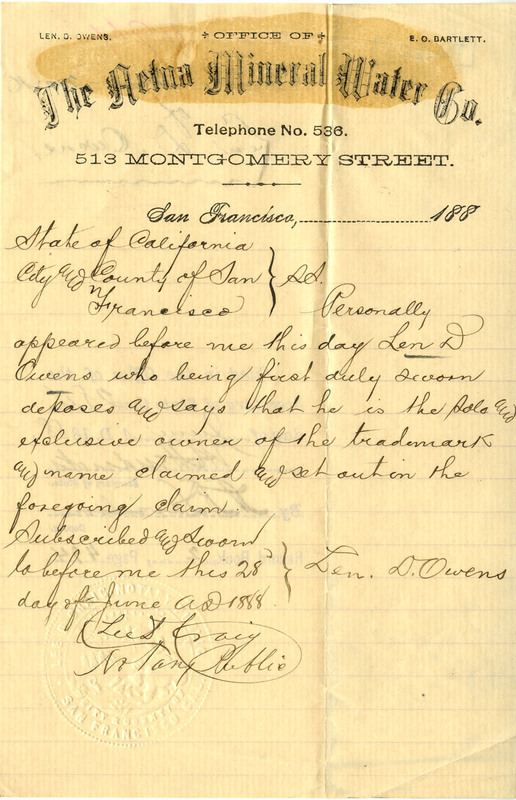 LEN. D. OWENS.
OFFICE OF
E. O. BARTLETT.
The Aetna Mineral Water Co.
Telephone No. 536.
513 MONTGOMERY STREET.
San Francisco, 188
State of California
City and County of San
Francisco } SS.
Personally
appeared before me this day Len D
Owens who being first duly sworn
deposes and says that he is the sole and
exclusive owner of the trademark
and name claimed and set out in the
foregoing claim.
Subscribed and Sworn
to before me this 28
day of June AD 1888.
} Len. D. Owens
Lee D. Craig
Notary Public